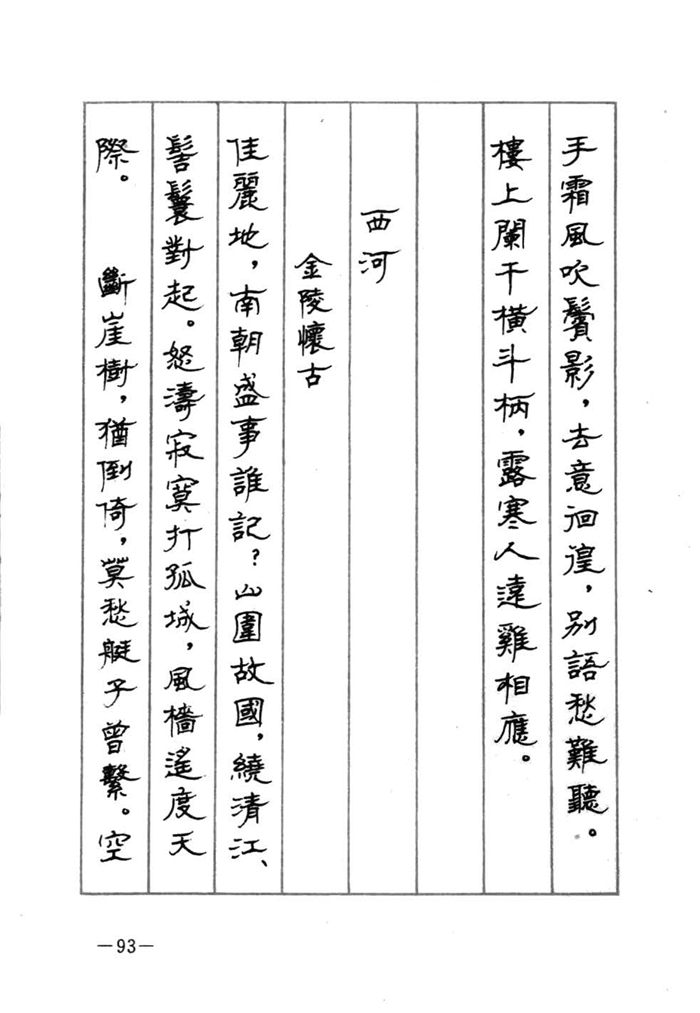 手霜風吹鬢影，去意徊徨，别語愁難聽。
樓上闌干横斗柄，露寒人遠雞相應。
西河
金陵懷古
佳麗地，南朝盛事誰記？山圍故國，繞清江、
髻鬟對起。怒濤寂寞打孤城，風檣遙度天
際。　斷崖樹，猶倒倚，莫愁艇子曾繫。空
—93—